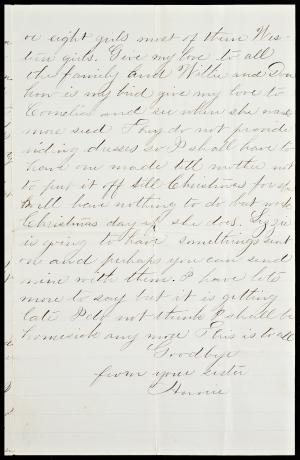 or eight girls most of them Wes-
tern girls. Give my love to all
the family and Willie and
how is my bird give my love to
Cornelia and see when she wants
more seed They do not provide
riding dresses so I shall have to
have one made tell mother not
to put it off till Christmas for
will have nothing to do but work
Christmas day if she does. Lizzie
is going to have somethings sent
on and perhaps you can send
mine with them. I have lots
more to say but it is getting
late I do not think I shall be
homesick any more This is to all
Goodbye
from your sister